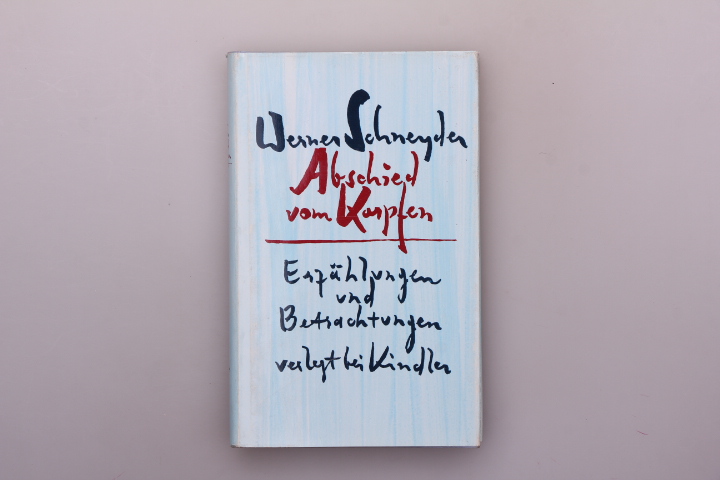 Werner Schneyder
Abschied
vom Karpfen
Erzählungen
und
Betrachtungen
verlegt bei Kindler